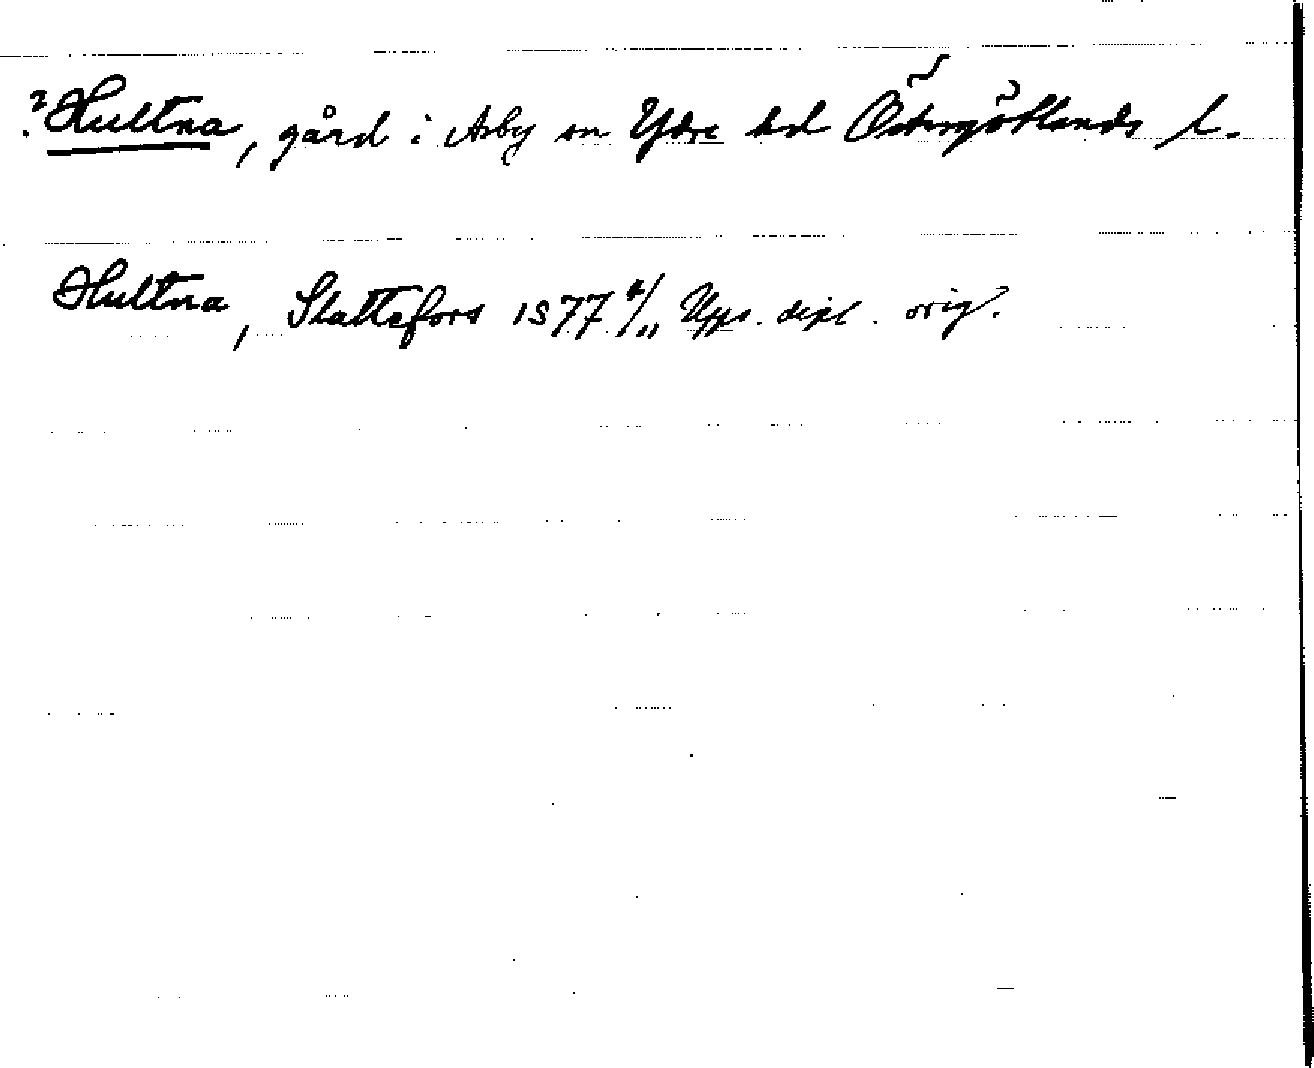 ? Hultna, gård i Asby sn Ydre hd Östergötlands l.
Hultna, Slattefors 1577 4/11 Upps. dipl. orig.